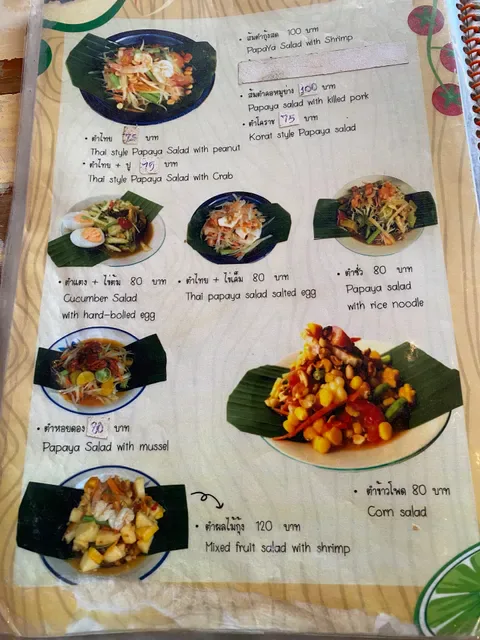 • ส้มตำกุ้งสด 100 บาท
Papaya Salad with Shrimp
• ส้มตำคอหมูย่าง 100 บาท
Papaya salad with killed pork
• ตำโคราช 75 บาท
Korat style Papaya salad
• ตำไทย 75 บาท
Thai style Papaya Salad with peanut
• ตำไทย + ปู 75 บาท
Thai style Papaya Salad with Crab
• ตำแตง + ไข่ต้ม 80 บาท
Cucumber Salad
with hard-boiled egg
• ตำไทย + ไข่เค็ม 80 บาท
Thai papaya salad salted egg
• ตำซั่ว 80 บาท
Papaya salad
with rice noodle
• ตำหอยดอง 80 บาท
Papaya Salad with mussel
• ตำข้าวโพด 80 บาท
Corn salad
• ตำผลไม้กุ้ง 120 บาท
Mixed fruit salad with shrimp